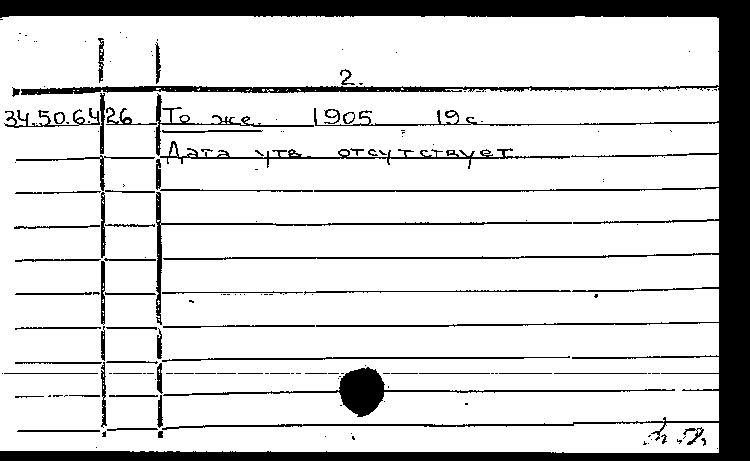 2.
34.50.6.426 То же. 1905 19 с.
Дата утв. отсутствует.